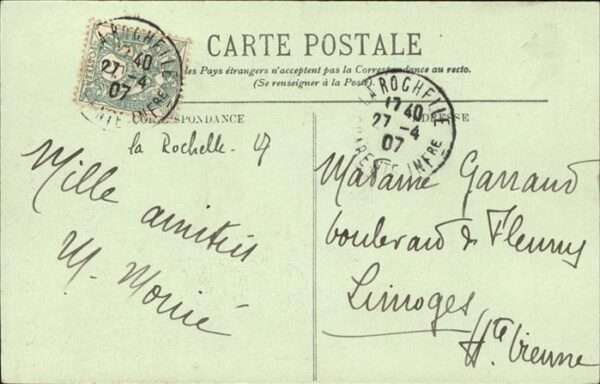 CARTE POSTALE
les Pays étrangers n'acceptent pas la Correspondance au recto.
(Se renseigner à la Poste)
CORRESPONDANCE
ADRESSE
LA ROCHELLE
17 40
27 -4
07
CHARENTE INFRE
LA ROCHELLE
17 40
27 -4
07
CHARENTE INFRE
la Rochelle - 27
Mille amitiés
M.
Madame Garraud
boulevard de Fleurus
Limoges
Hte Vienne